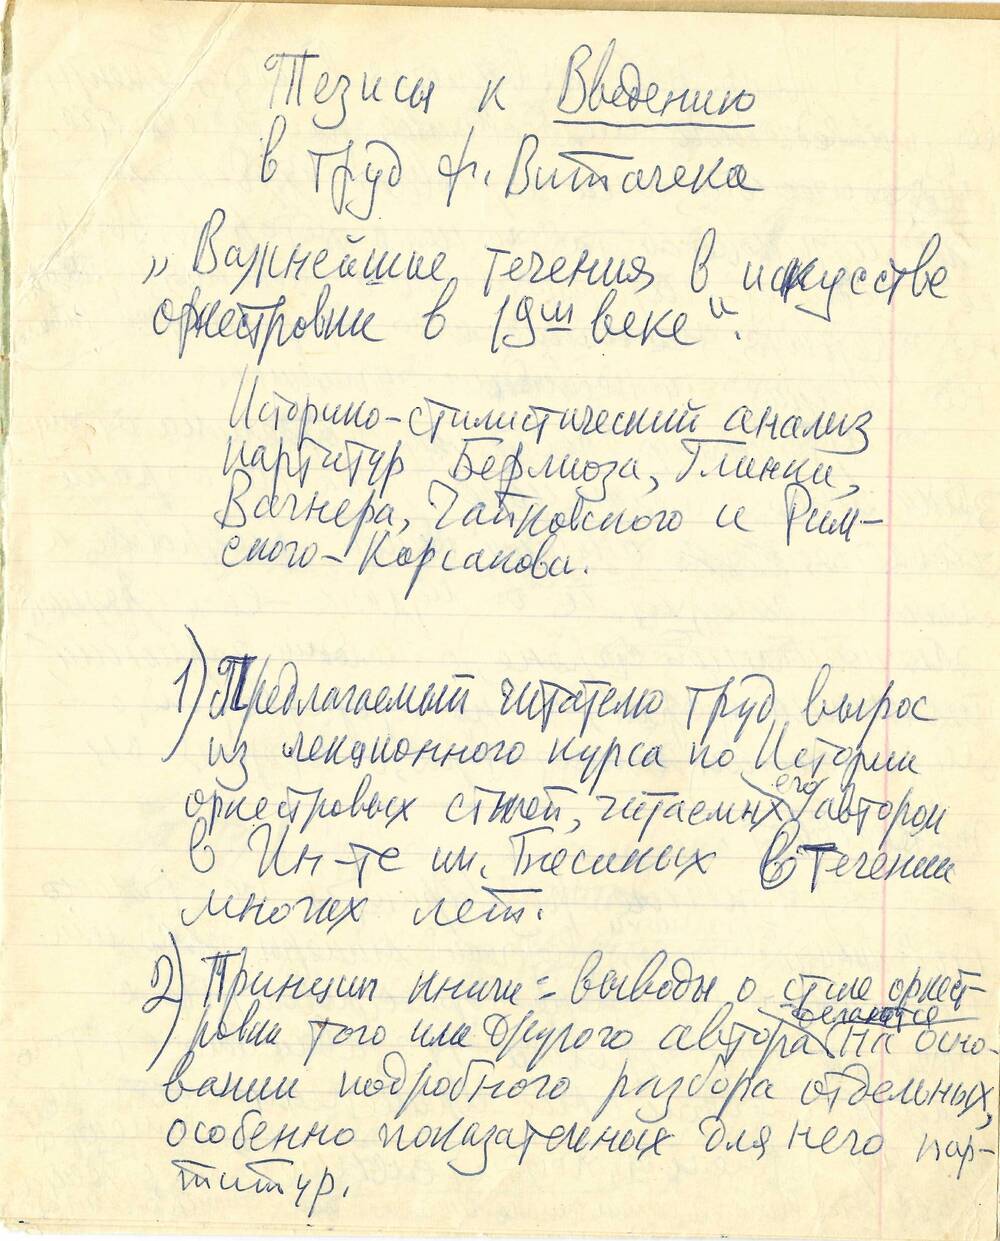 Тезисы к Введению
в труд Ф. Витачека
„Важнейшие течения в искусстве
оркестровки в 19ш веке".
Историко-стилистический анализ
партитур Берлиоза, Глинки,
Вагнера, Чайковского и Рим-
ского-Корсакова.
1) Предлагаемый читателю труд вырос
из лекционного курса по Истории
оркестровых стилей, читаемых его автором
в Ин-те им. Гнесиных в течении
многих лет.
2) Принцип книги = выводы о стиле оркест-
ровки того или другого автора делаются на осно-
вании подробного разбора отдельных,
особенно показательных для него пар-
титур.